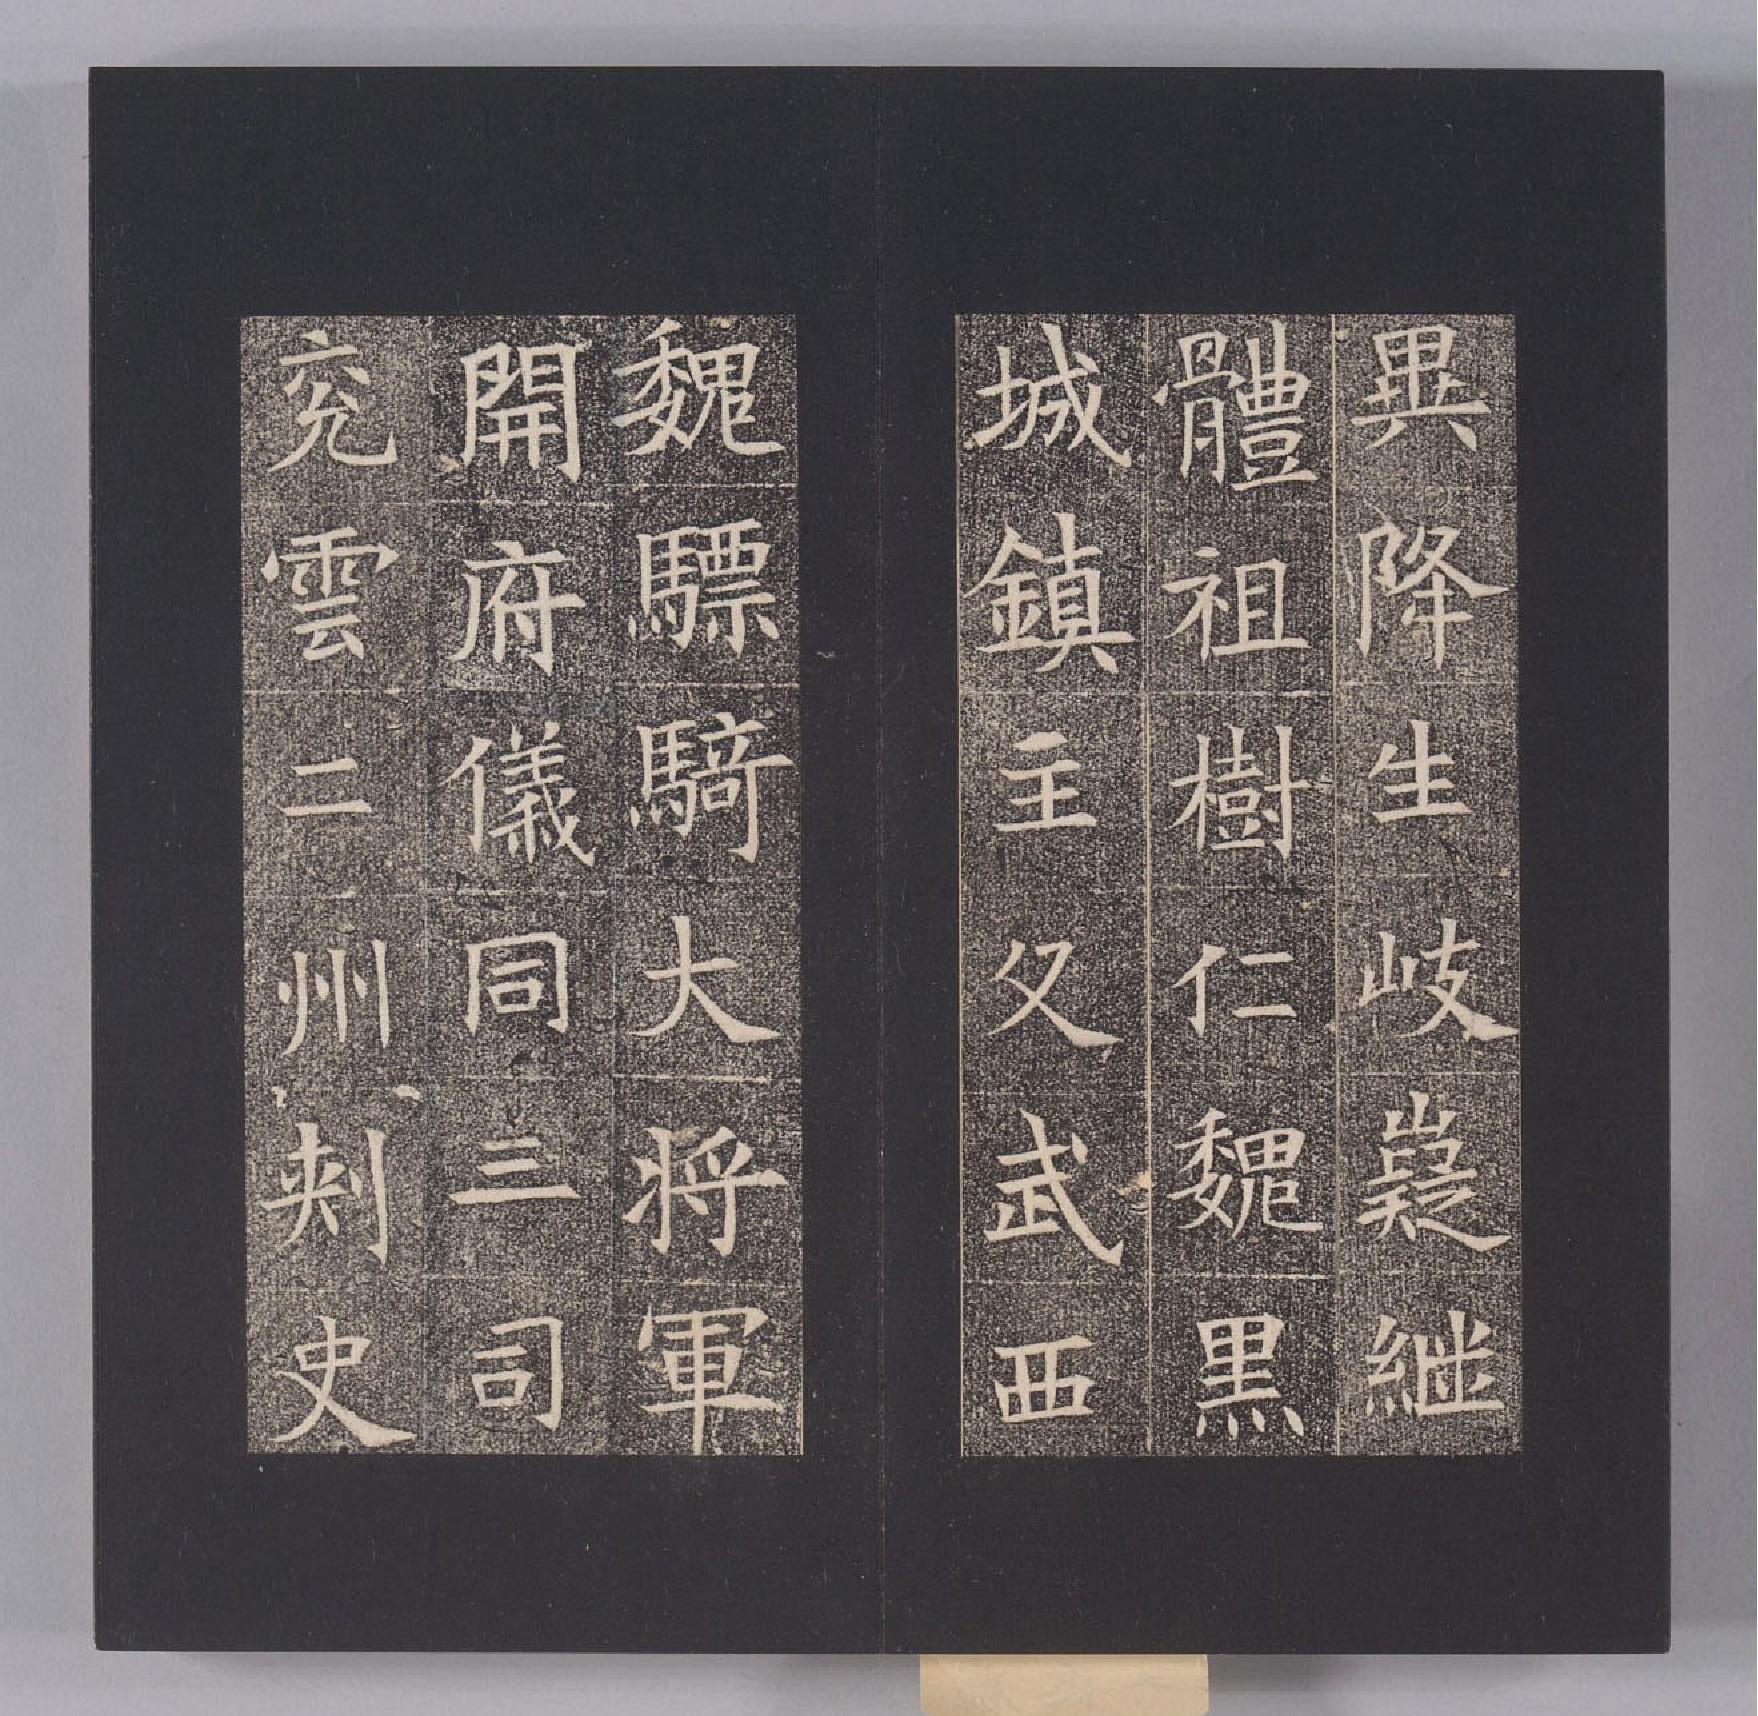 異降生岐嶷継
體祖樹仁魏黒
城鎮主父武西
魏驃騎大将軍
開府儀同三司
兖雲二州刺史